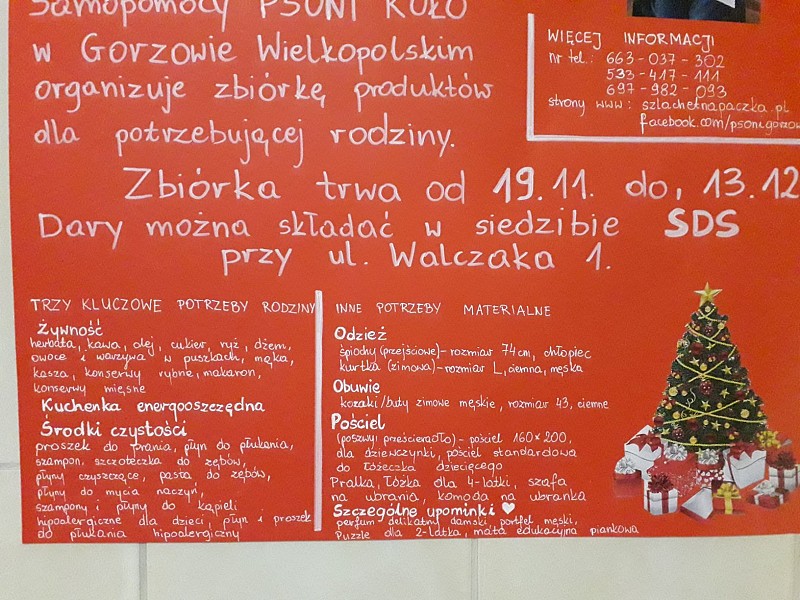 Samopomocy PSONI KOŁO
w Gorzowie Wielkopolskim
organizuje zbiórkę produktów
dla potrzebującej rodziny.
WIĘCEJ INFORMACJI
nr tel.: 663-037-302
533-417-111
697-982-093
strony www: szlachetnapaczka.pl
facebook.com/psoni.gorzow
Zbiórka trwa od 19.11. do, 13.12
Dary można składać w siedzibie SDS
przy ul. Walczaka 1.
TRZY KLUCZOWE POTRZEBY RODZINY
Żywność
herbata, kawa, olej, cukier, ryż, dżem,
owoce i warzywa w puszkach, mąka,
kasza, konserwy rybne, makaron,
konserwy mięsne
Kuchenka energooszczędna
Środki czystości
proszek do prania, płyn do płukania,
szampon, szczoteczka do zębów,
płyny czyszczące, pasta do zębów,
płyny do mycia naczyń,
szampony i płyny do kąpieli
hipoalergiczne dla dzieci, płyn i proszek
do płukania hipoalergiczny
INNE POTRZEBY MATERIALNE
Odzież
śpiochy (przejściowe) - rozmiar 74 cm, chłopiec
kurtka (zimowa) - rozmiar L, ciemna, męska
Obuwie
kozaki/buty zimowe męskie, rozmiar 43, ciemne
Pościel
(poszwy prześcieradło) - pościel 160×200,
dla dziewczynki, pościel standardowa
do łóżeczka dziecięcego
Pralka, łóżka dla 4-latki, szafa
na ubrania, komoda na ubranka
Szczególne upominki ♥
perfum delikatny damski, portfel męski,
Puzzle dla 2-latka, mata edukacyjna piankowa